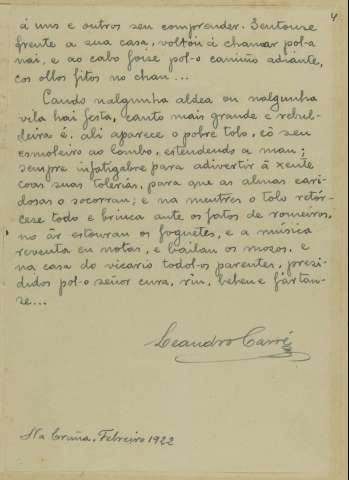 4
á uns e outros seu comprender. Sentouse
frente a sua casa, voltóu á chamar pol-a
nai, e ao cabo foise pol-o camiño adiante,
cos ollos fitos no chan...
Cando nalgunha aldea ou nalgunha
vila hai festa, canto mais grande e rebul-
deira é, ali aparece o pobre tolo, có seu
esmoleiro ao lombo, estendendo a man;
sempre infatigabre para adivertir á xente
coas suas tolerias, para que as almas cari-
dosas o socorran; e na mentres o tolo retór-
cese todo e brinca ante os fatos de romeiros,
no ár estouran os foguetes, e a música
reventa en notas, e bailan os mozos, e
na casa do vicario todol-os parentes, presi-
didos pol-o señor cura, rin, beben e fártan-
se...
Leandro Carré
Na Cruña, Febreiro 1922